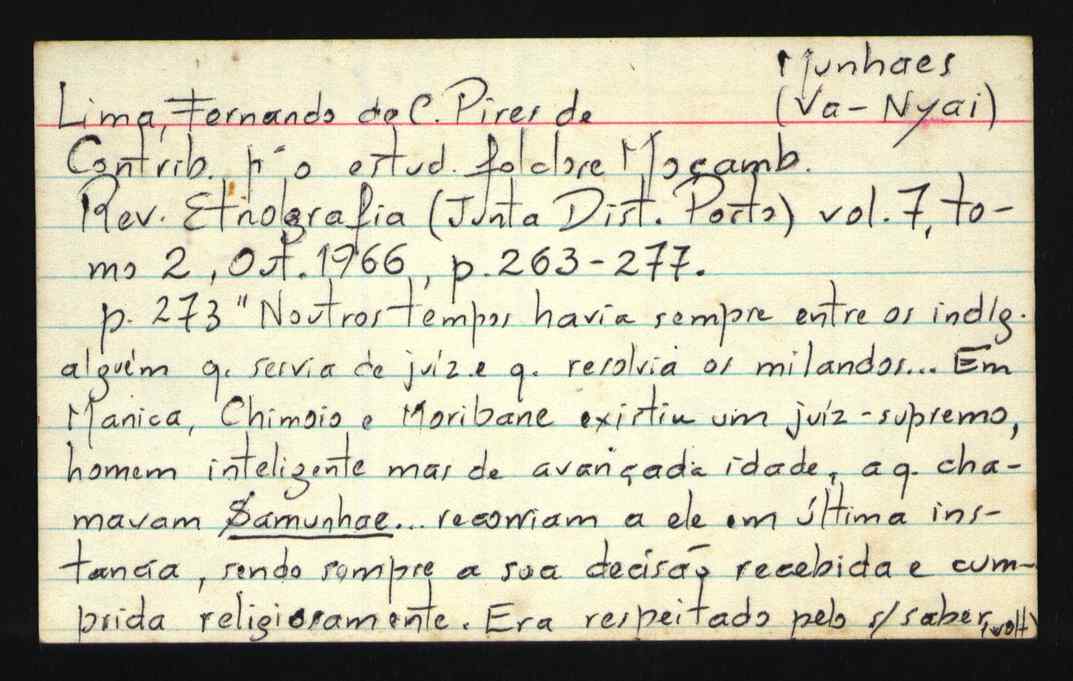 Munhaes
(Va-Nyai)
Lima, Fernando de C. Pires de
Contrib. pª o estud. folclore Moçamb.
Rev. Etnografia (Junta Dist. Porto) vol. 7, to-
mo 2, Out. 1966, p. 263-277.
p. 273 "Noutros tempos havia sempre entre os indíg.
alguém q. servia de juiz e q. resolvia os milandos... Em
Manica, Chimoio e Moribane existiu um juiz-supremo,
homem inteligente mas de avançada idade, a q. cha-
mavam Samunhae... recorriam a ele em última ins-
tancia, sendo sempre a sua decisão recebida e cum-
prida religiosamente. Era respeitado pelo s/ saber, (volt)